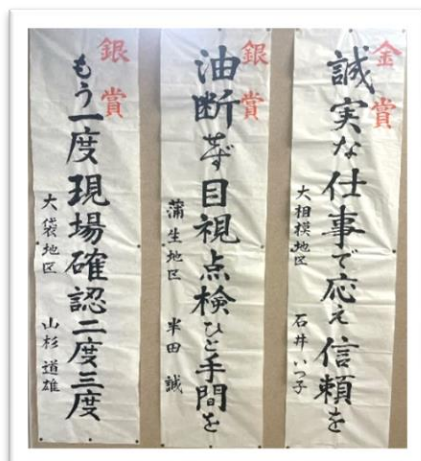 金賞
誠実な仕事で応え信頼を
大相模地区 石井いつ子
銀賞
油断せず目視点検ひと手間を
蒲生地区 半田誠
銀賞
もう一度現場確認二度三度
大袋地区 山杉道雄